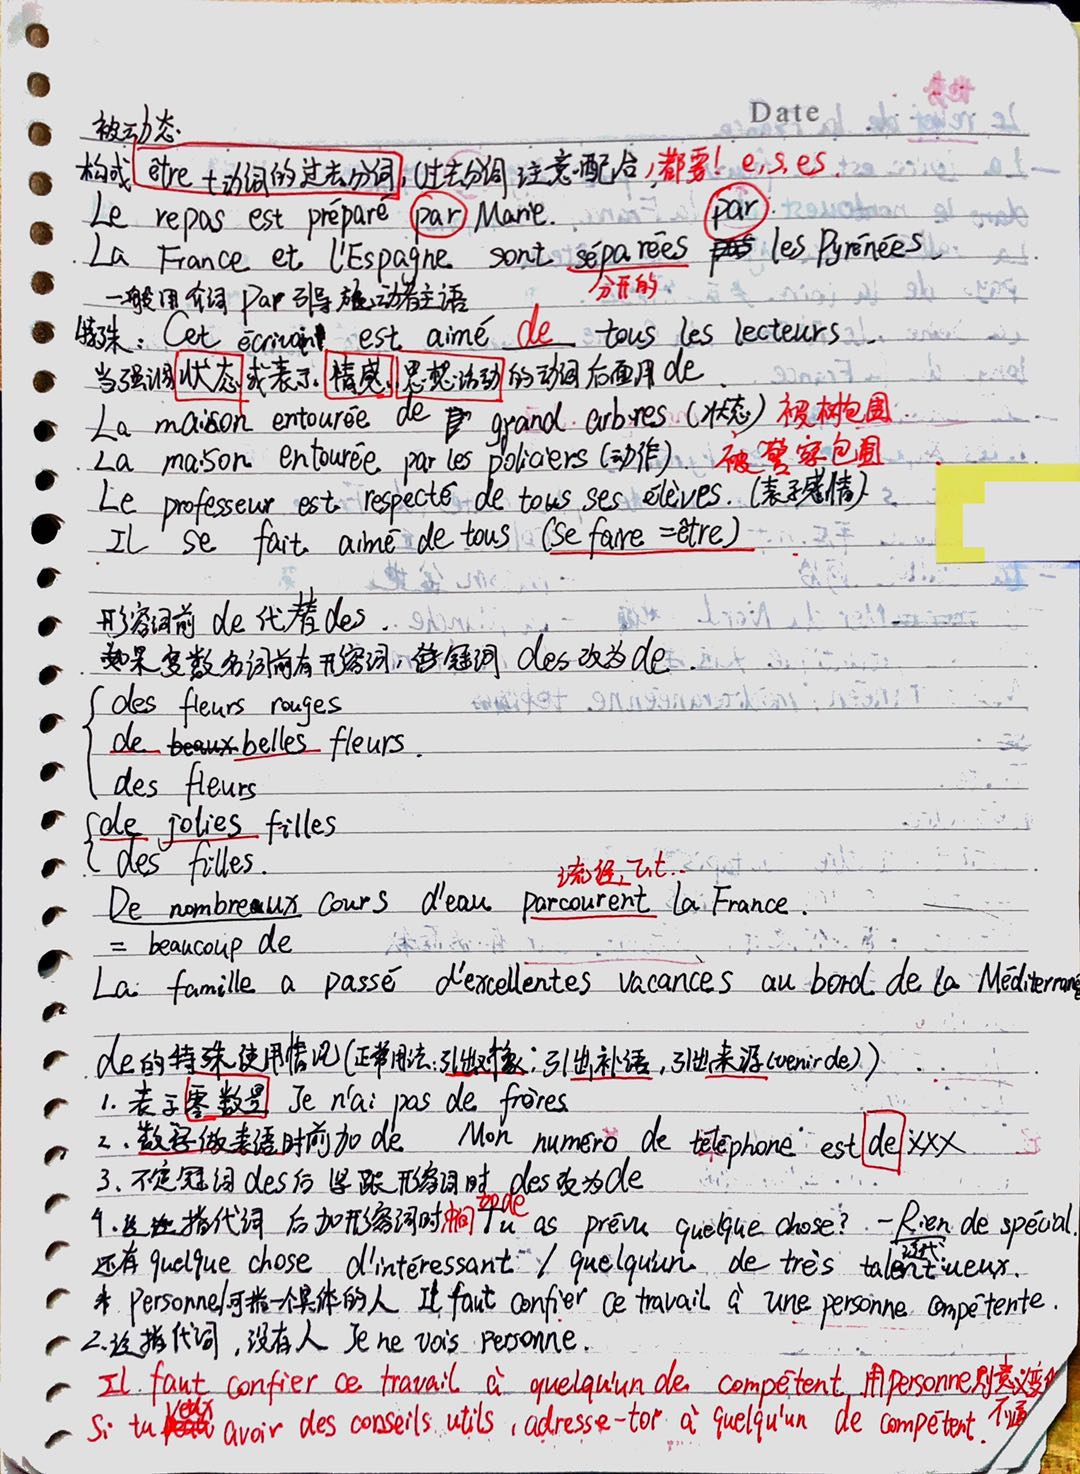 Date
被动态
构成 être + 动词的过去分词, (过去分词 注意配合, 都要! e, s, es.
Le repas est préparé par Marie. par
La France et l'Espagne sont séparées les Pyrénées.
分开的
一般用介词 par 引导施动者主语
特殊: Cet écrivain est aimé de tous les lecteurs.
当强调状态或表示情感, 思想活动的动词后面用 de
La maison entourée de grand arbres (状态) 被树包围
La maison entourée par les policiers (动作) 被警察包围
Le professeur est respecté de tous ses élèves. (表示感情)
Il se fait aimé de tous (se faire = être)
形容词前 de 代替 des.
如果复数名词前有形容词, 冠词 des 改为 de
des fleurs rouges
de beaux belles fleurs.
des fleurs
de jolies filles
des filles.
流经
De nombreaux cours d'eau parcourent la France.
= beaucoup de
La famille a passé d'excellentes vacances au bord de la Méditerrané
de的特殊使用情况 (正常用法: 引出对象; 引出补语, 引出来源 (venir de))
1. 表示零数量 Je n'ai pas de frères
2. 数字做表语时前加 de Mon numéro de téléphone est de XXX
3. 不定冠词 des 后紧跟形容词时 des 改为 de
4. 泛指代词 后加形容词时中间加de Tu as prévu quelque chose? - Rien de spécial.
还有 quelque chose d'intéressant / quelqu'un de très talentueux.
泛代
* personne 1. 可指一个具体的人 Il faut confier ce travail à une personne compétente.
2. 泛指代词, 没有人 Je ne vois personne.
Il faut confier ce travail à quelqu'un de compétent, 用personne则意义变化
Si tu veux avoir des conseils utils, adresse-toi à quelqu'un de compétent. 不通